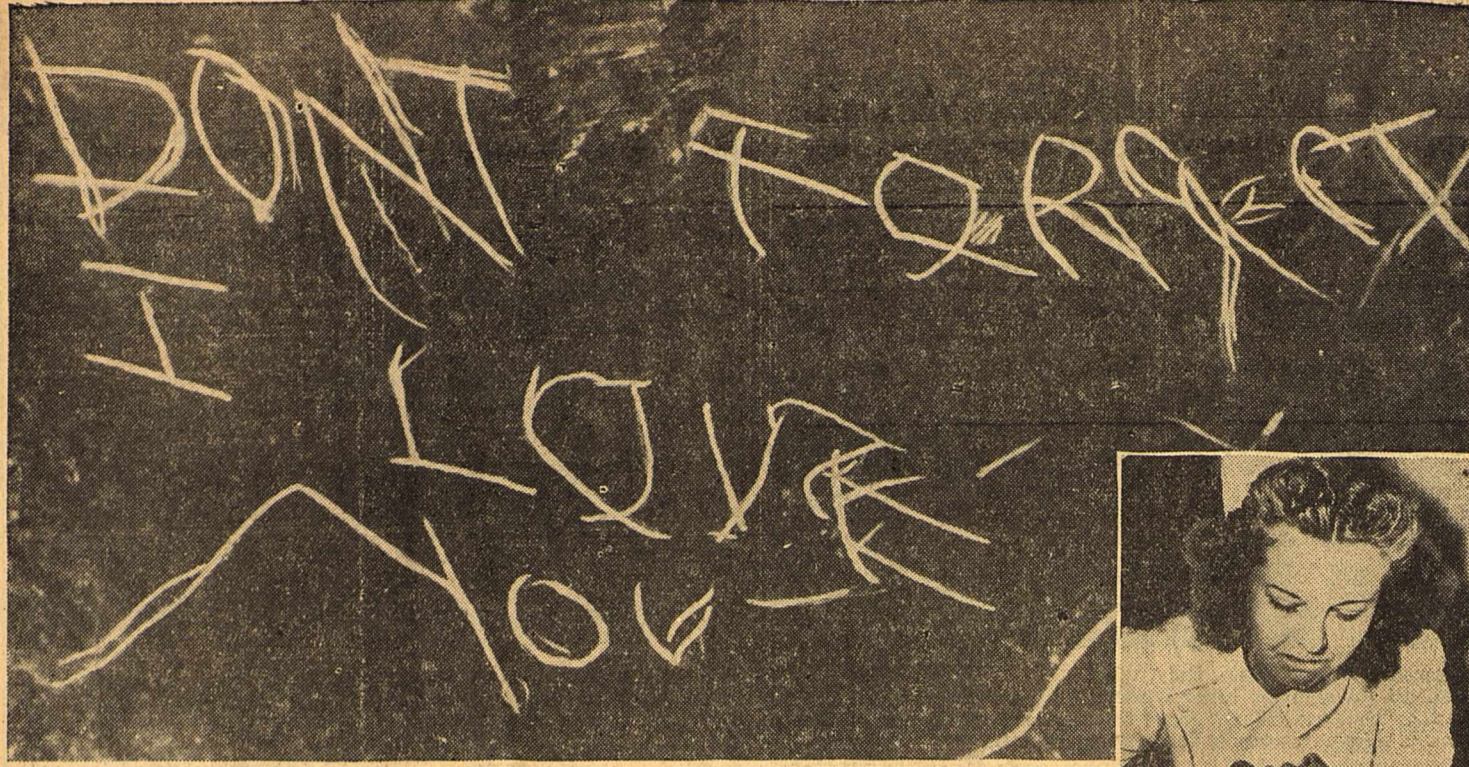 DONT FORGET
I LOVE
YOU